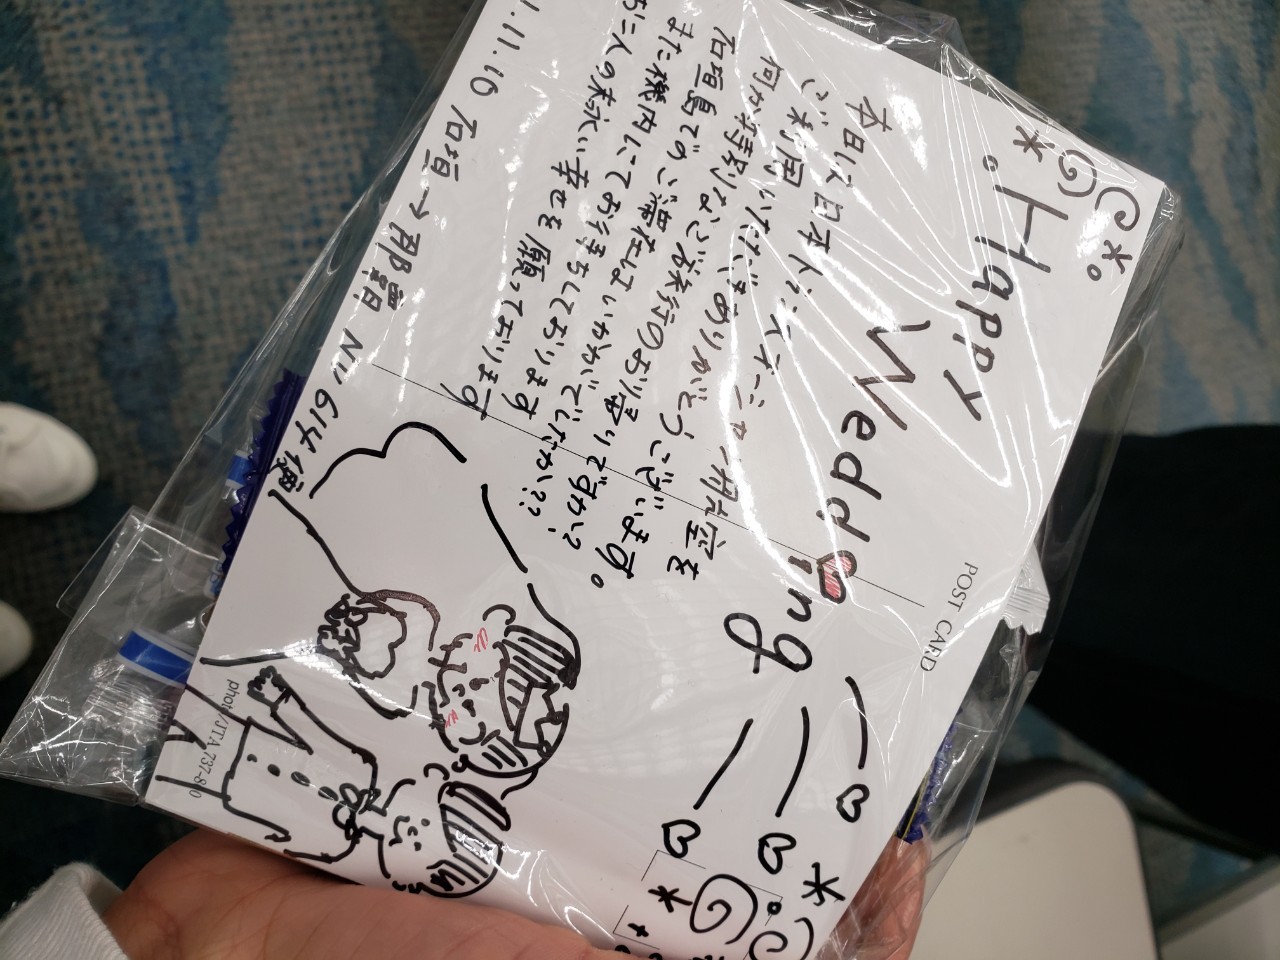 Happy
Wedding
POST CARD
本日は日本トランスオーシャン航空を
ご利用いただきありがとうございます。
何か特別なご旅行のお帰りですか?
石垣島でのご滞在はいかがでしたか??
また機内にてお待ちしております
お二人の末永い幸せを願っております
1.11.10 石垣→那覇 NU 614便
photo/JTA 737-800